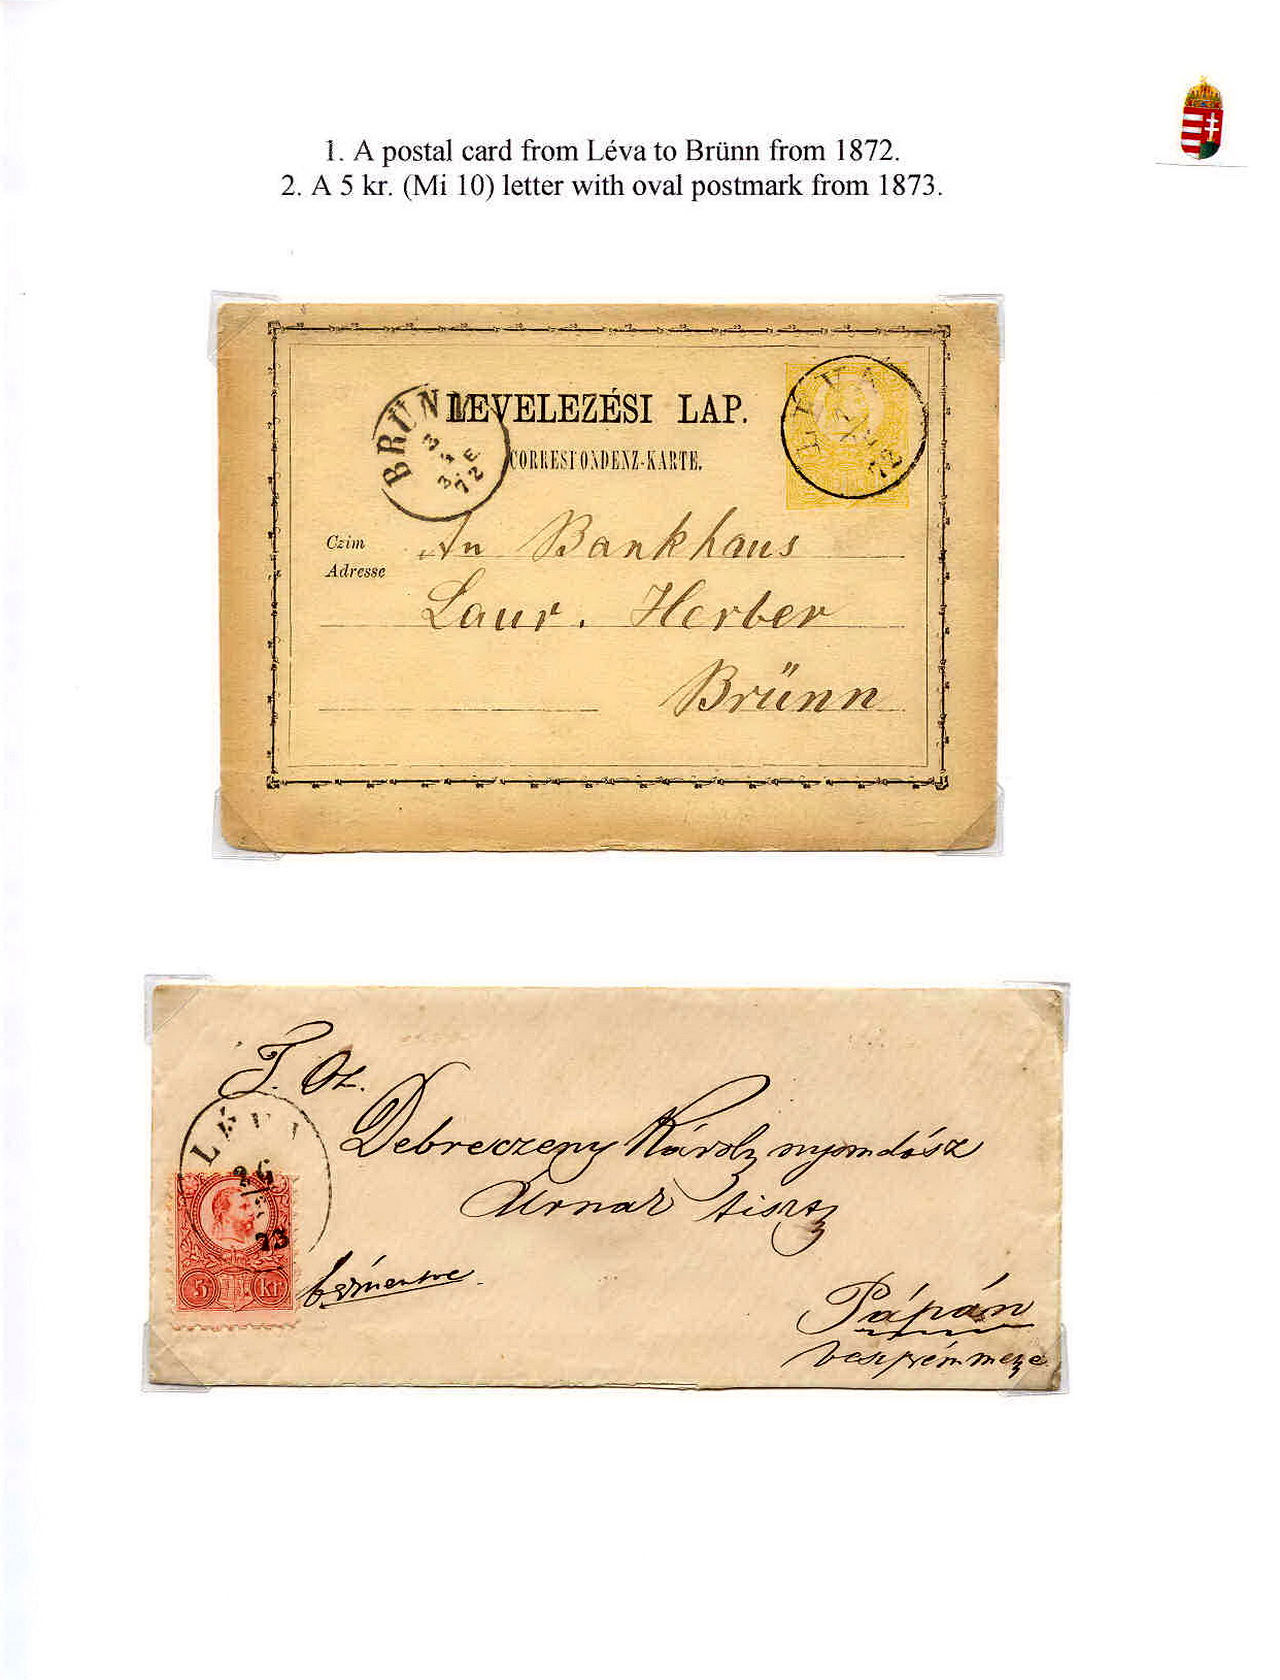 1. A postal card from Léva to Brünn from 1872.
2. A 5 kr. (Mi 10) letter with oval postmark from 1873.
LEVELEZÉSI LAP.
CORRESPONDENZ-KARTE.
BRÜNN
3
4
3. E
72
LÉVA
72
Czim
Adresse
An Bankhaus
Laur. Herber
Brünn
T. Cz.
Debreczeny Károly nyomdász
Urnak tiszt
LÉVA
26
73
5 kr
bérmentve
Pápán
veszprémmegye